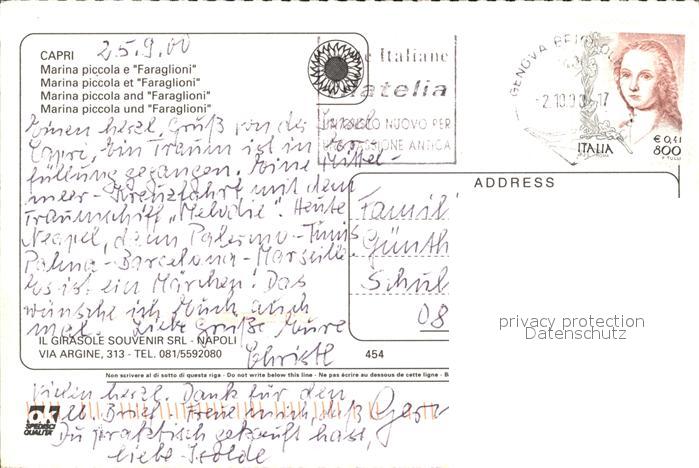 CAPRI 25.9.00
Marina piccola e "Faraglioni"
Marina piccola et "Faraglioni"
Marina piccola and "Faraglioni"
Marina piccola und "Faraglioni"
Einen herzl. Gruß von der Insel
Capri, Ein Traum ist in Er-
füllung gegangen. Eine Mittel-
meer-Kreuzfahrt mit dem
Traumschiff "Melodie". Heute
Neapel, dann Palermo-Tunis
Palma-Barcelona-Marseille.
Es ist ein Märchen! Das
wünsche ich Euch auch
mal. Liebe Grüße Eure
Christl
IL GIRASOLE SOUVENIR SRL - NAPOLI
VIA ARGINE, 313 - TEL. 081/5592080
454
Non scrivere al di sotto di questa riga - Do not write below this line - Ne pas écrire au dessous de cette ligne - B
Vielen herzl. Dank für den
lb. Brief - Freue mich, daß
Du praktisch gekauft hast,
liebe Isolde
OK
SPEDISCI
QUALITÀ
e Italiane
atelia
UN NUOVO PER
ANTICA
GENOVA
2.10.00 17
ITALIA
€ 0,41
800
ADDRESS
Famili
Günth
Schul
08
Ger
privacy protection
Datenschutz